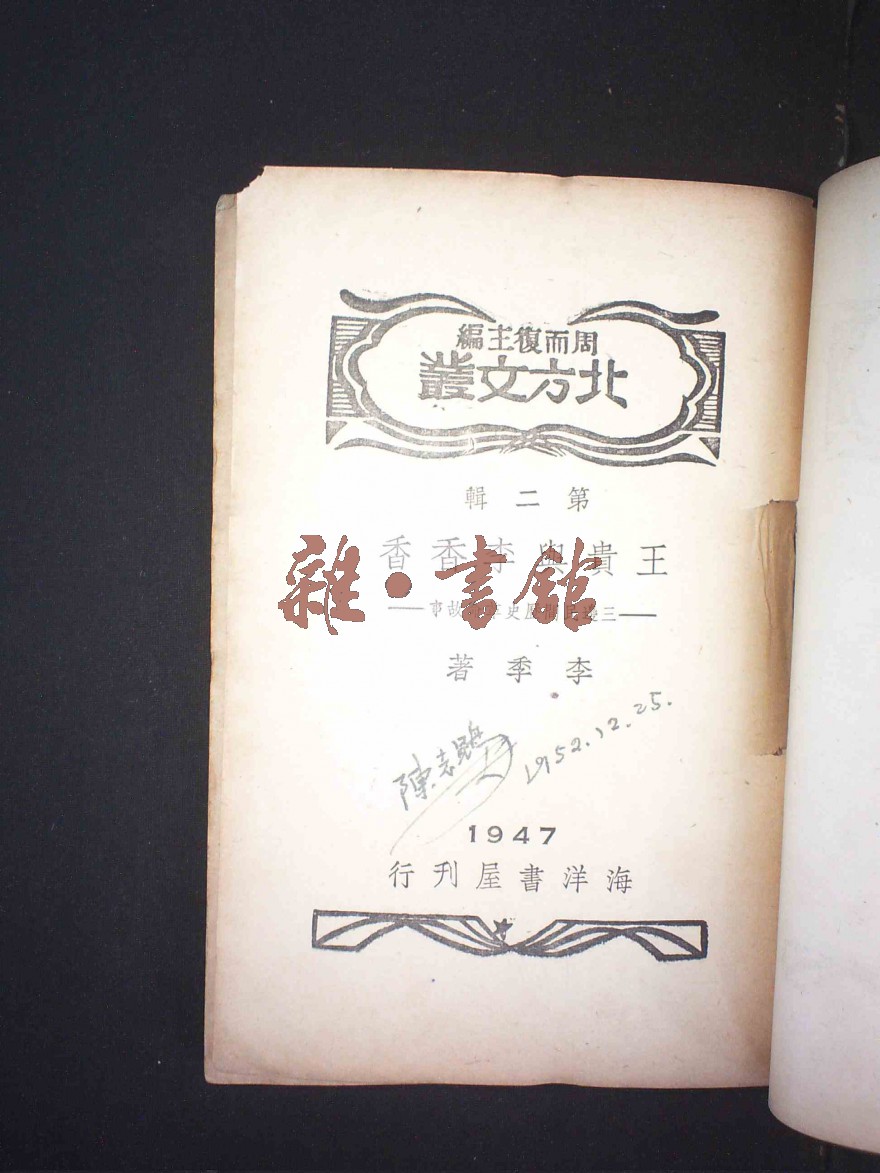 周而復主編
北方文叢
第二輯
王貴與李香香
——三邊民間歷史革命故事——
李季著
陳志
1952.12.25.
1947
海洋書屋刊行
雜·書館